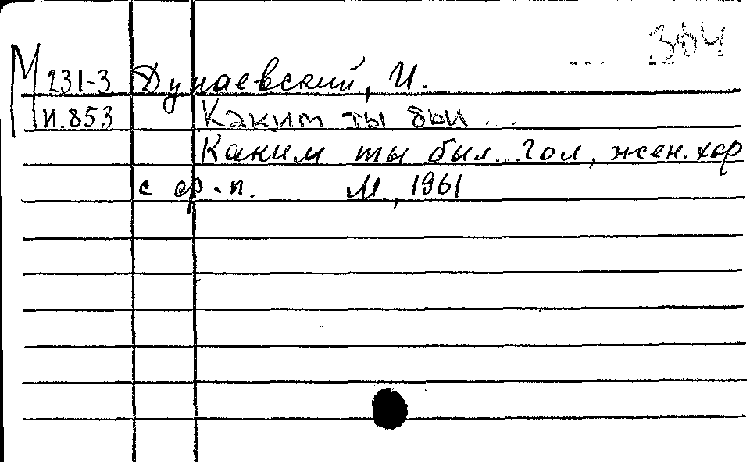 304
М 231-3 Дунаевский, И.
И.853 Каким ты был ...
Каким ты был. Гол, жен. хор
с ф.-п. М, 1961